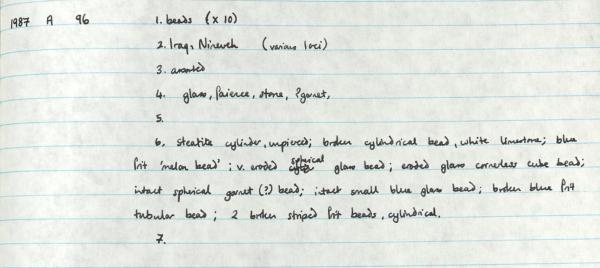 1987 A 96
1. beads (x 10)
2. Iraq, Nineveh (various loci)
3. assorted
4. glass, faience, stone, ?garnet,
5.
6. steatite cylinder, unpierced; broken cylindrical bead, white limestone; blue
frit 'melon bead'; v. eroded spherical glass bead; eroded glass cornerless cube bead;
intact spherical garnet (?) bead; intact small blue glass bead; broken blue frit
tubular bead; 2 broken striped frit beads, cylindrical.
7.